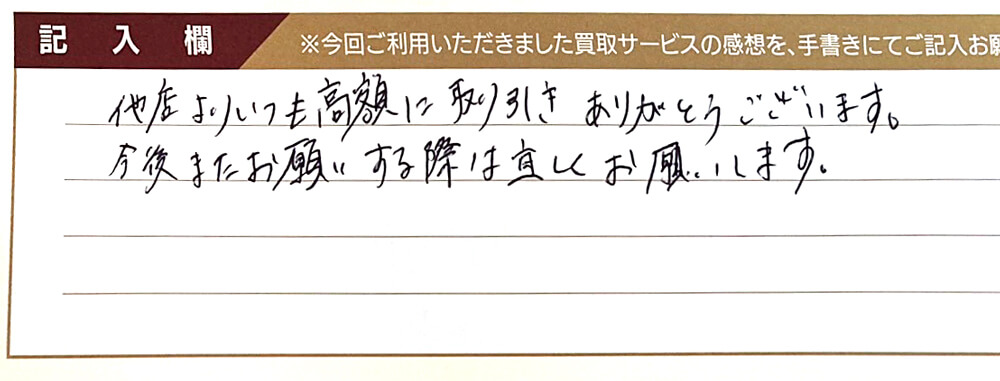 記入欄
※今回ご利用いただきました買取サービスの感想を、手書きにてご記入お願
他店よりいつも高額に取り引きありがとうございます。
今後またお願いする際は宜しくお願いします。